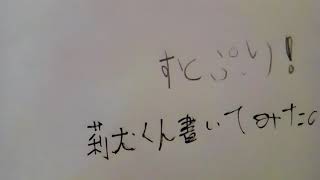 すとぷり!
莉犬くん書いてみた